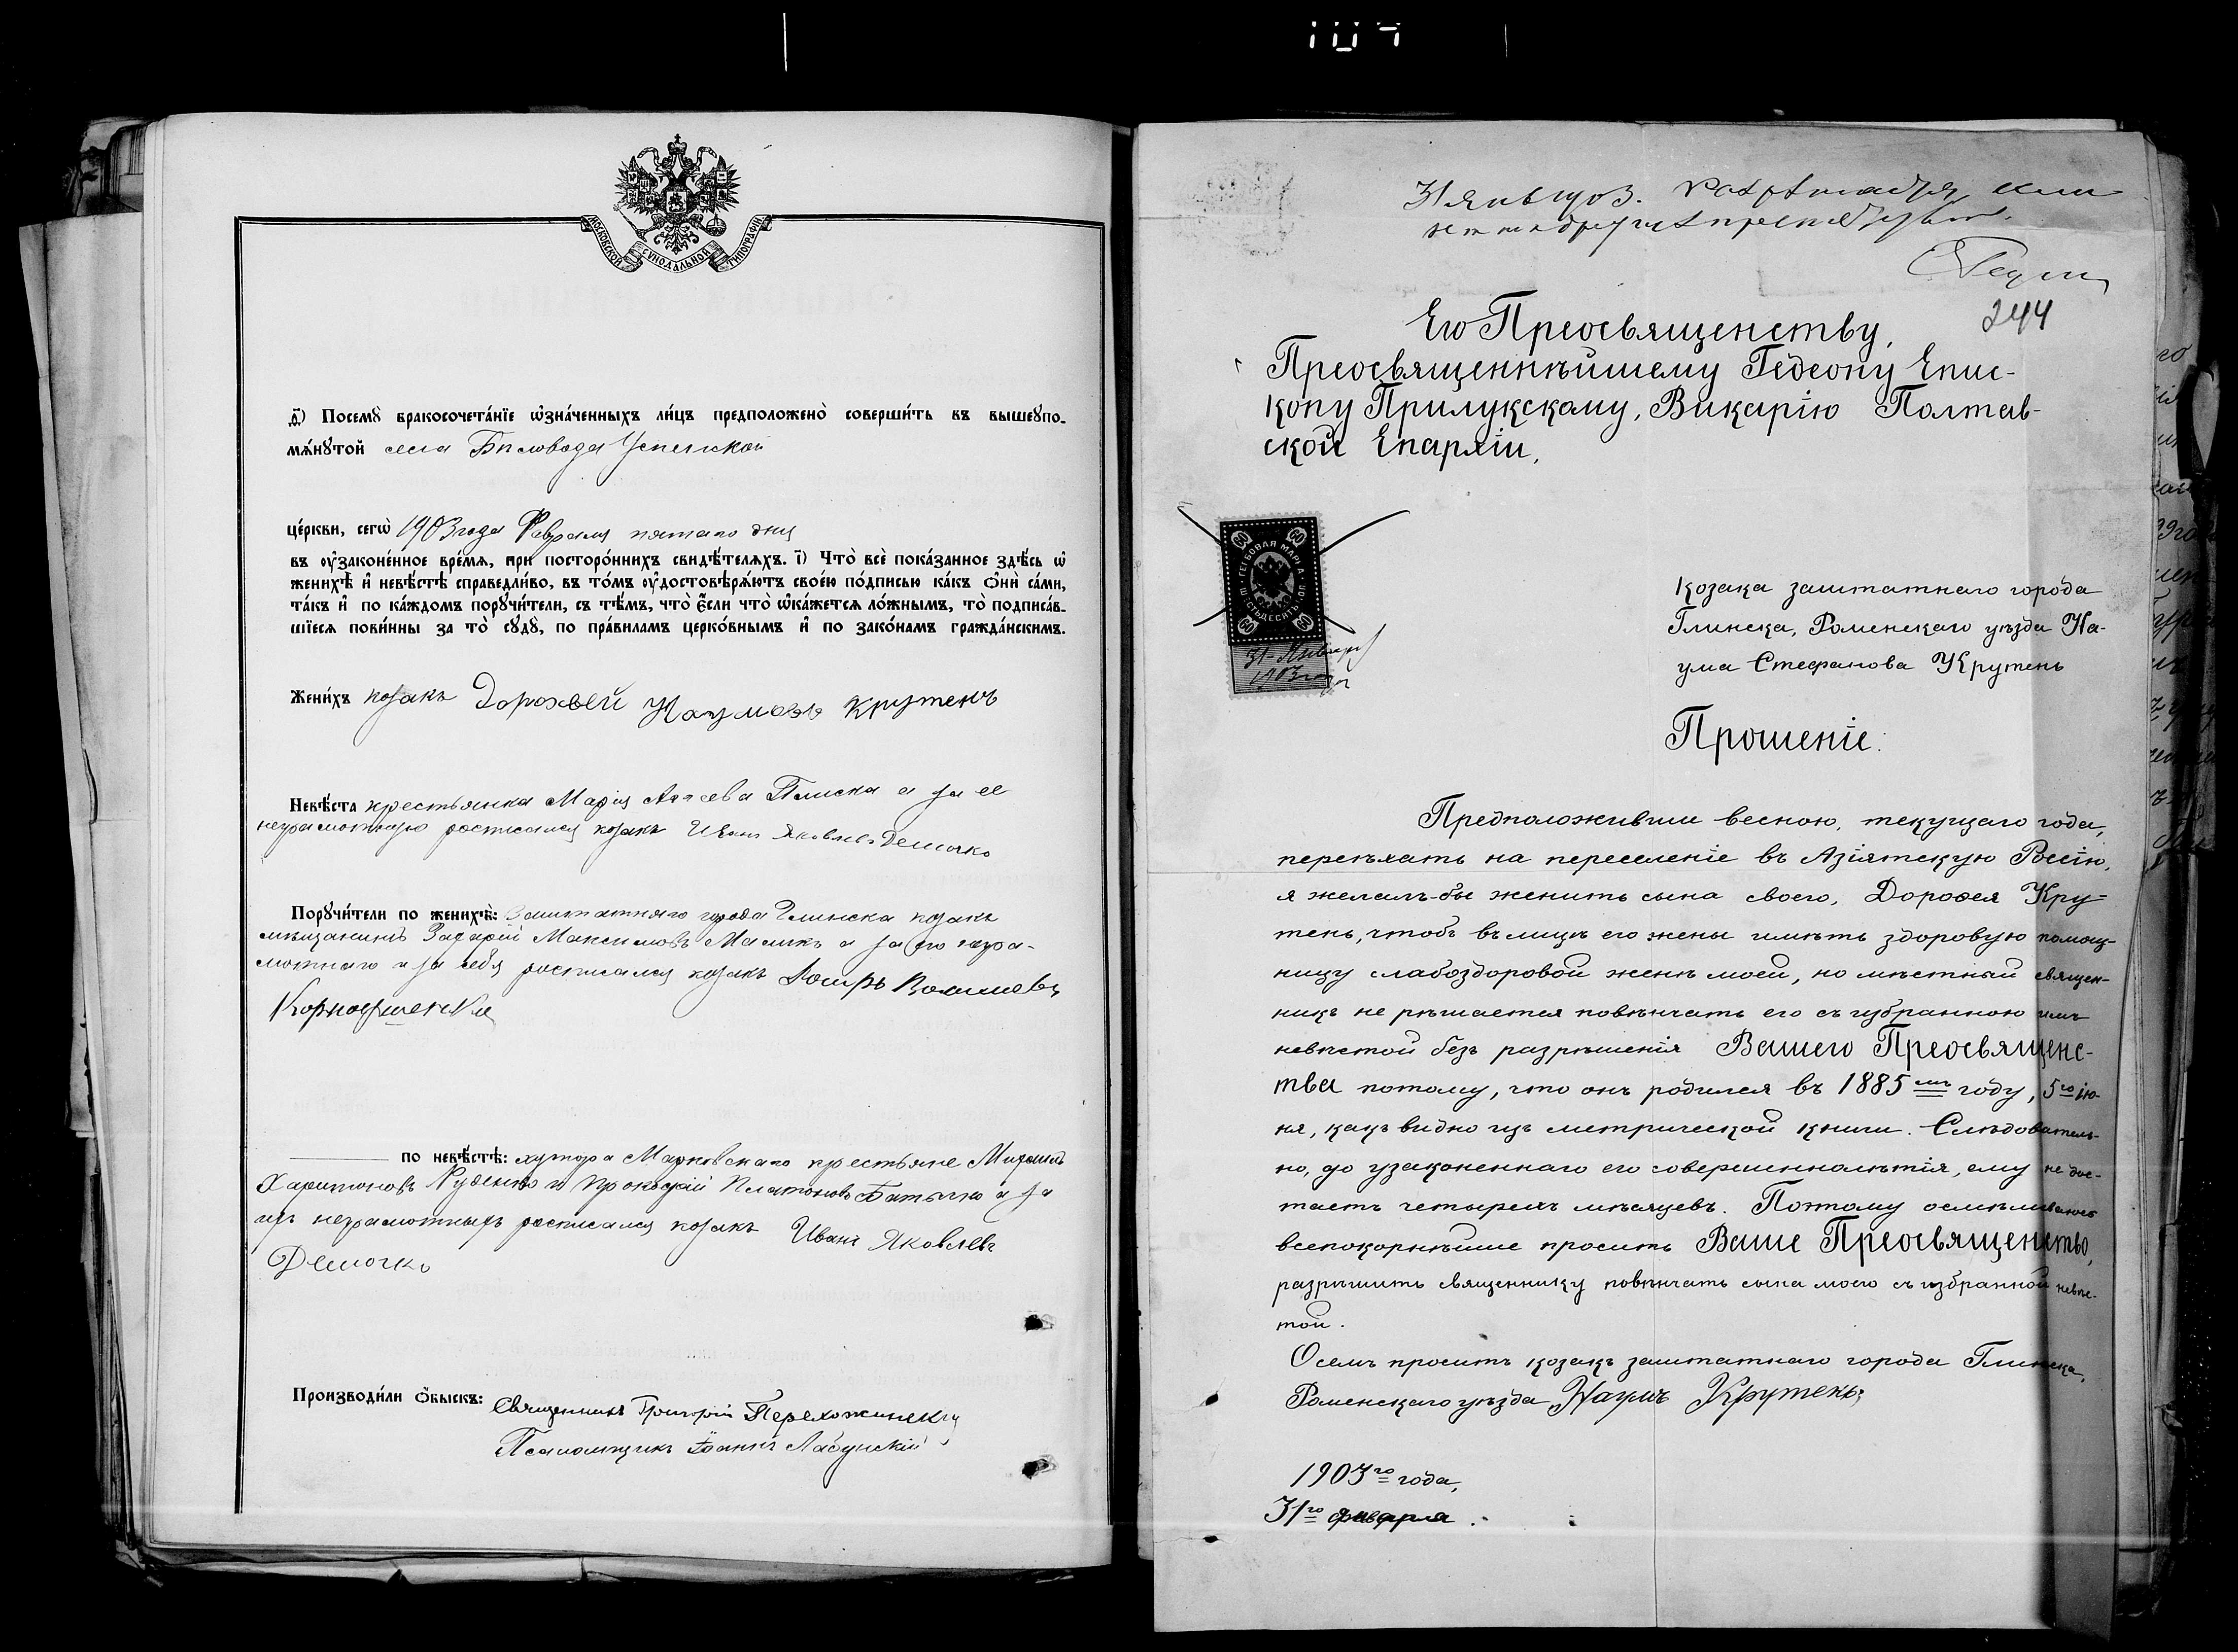 104
МОСКОВСКОЙ СѴНОДАЛЬНОЙ ТИПОГРАФІИ
д҃) Посемꙋ̀ бракосочета́нїе ѡ҆зна́ченныхъ ли́цъ предположено̀ соверши́ть въ вышеꙋпо-
мѧ́нꙋтой села Бѣловода Успенской
це́ркви, сегѡ̀ 1903 года Февраля пятаго дня
въ оу҆зако́ненное вре́мѧ, при посторо́ннихъ свидѣ́телѧхъ. і҃) Что̀ всѐ пока́занное здѣ́сь ѡ҆
женихѣ̀ и҆ невѣ́стѣ справедли́во, въ то́мъ оу҆достовѣрѧ́ютъ свое́ю по́дписью ка́къ ѻ҆нѝ са́ми,
та́къ и҆ по ка́ждомъ порꙋчи́тели, съ тѣ́мъ, что̀ є҆́сли что̀ ѡ҆ка́жетсѧ ло́жнымъ, то̀ подписа́в-
шїесѧ пови́нны за то̀ сꙋдꙋ̀, по пра́виламъ церко́внымъ и҆ по зако́намъ гражда́нскимъ.
Жени́хъ козакъ Дорофей Наумовъ Крутень
Невѣ́ста крестьянка Марія Плиска а за ее
неграмотную росписался козакъ Иванъ Яковлевъ Демочко
Порꙋчи́тели по женихѣ̀: Заштатнаго города Глинска козакъ
мѣщанинъ Захарій Максимовъ Маликъ а за его негра-
мотнаго и за себя росписался козакъ
по невѣ́стѣ: хутора Марковскаго крестьяне Михаилъ
Харитоновъ Руденко и Прокофій Платоновъ а за
ихъ неграмотныхъ росписался козакъ Иванъ Яковлевъ
Демочко
Производи́ли ѻ҆́быскъ: Священникъ Григорій
Псаломщикъ Іоаннъ Лабунскій
31 янв 1903.
244
Его Преосвященству,
Преосвященнѣйшему Гедеону Епис-
копу Прилукскому, Викарію Полтав-
ской Епархіи,
60 60
ГЕРБОВАЯ МАРКА ШЕСТЬДЕСЯТЪ КОП.
60 60
31 Января
1903 года
козака заштатнаго города
Глинска, Роменскаго уѣзда На-
ума Стефанова Крутень
Прошеніе.
Предположивши весною, текущаго года,
переѣхать на переселеніе въ Азіятскую Россію,
я желалъ-бы женить сына своего, Дорофея Кру-
тень, чтобъ въ лицѣ его жены имѣть здоровую помощ-
ницу слабоздоровой женѣ моей, но мѣстный священ-
никъ не рѣшается повѣнчать его съ избранною имъ
невѣстой безъ разрѣшенія Вашего Преосвященс-
тва потому, что онъ родился въ 1885мъ году, 5го ію-
ня, какъ видно изъ метрической книги. Слѣдователь-
но, до узаконеннаго его совершеннолѣтія, ему не дос-
таетъ четырехъ мѣсяцевъ. Поэтому осмѣливаюсь
всепокорнѣйше просить Ваше Преосвященство,
разрѣшить священнику повѣнчать сына моего съ избранной невѣс-
той.
О семъ проситъ козакъ заштатнаго города Глинска,
Роменскаго уѣзда Наумъ Крутень;
1903го года,
31го января.